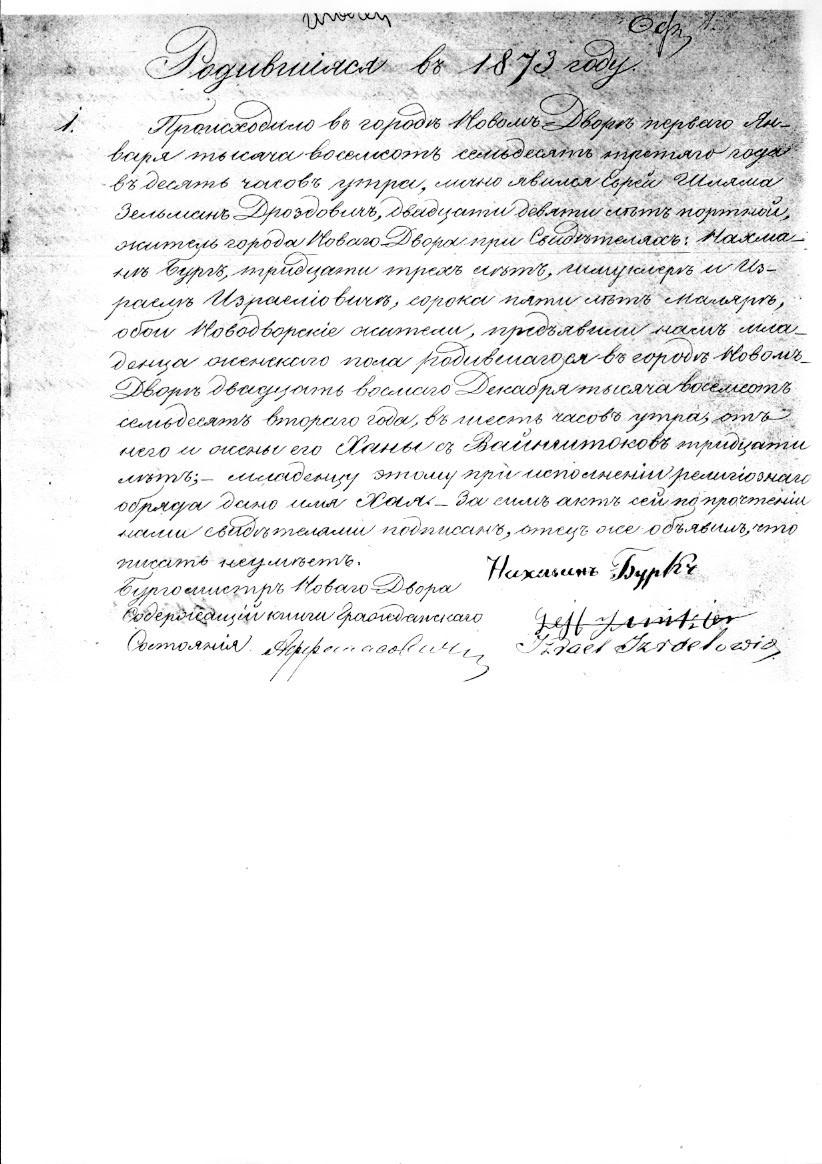 Родившіяся въ 1873 году
1. Происходило въ городѣ Новомъ-Дворѣ перваго Ян-
варя тысяча восемсотъ семьдесятъ третяго года
въ десять часовъ утра, лично явился Еврей Шляма
Зельманъ Дроздовичъ, двадцати девяти лѣтъ портной,
житель города Новаго-Двора при Свидѣтеляхъ: Нахма-
нѣ Бургъ, тридцати трехъ лѣтъ, шмуклерѣ и Из-
раелѣ Израеліовичѣ, сорока пяти лѣтъ Малярѣ,
обои Новодворскіе жители, предъявили намъ мла-
денца женскаго пола родившагося въ городѣ Новомъ-
Дворѣ двадцать восмаго Декабря тысяча восемсотъ
семьдесятъ втораго года, въ шесть часовъ утра, отъ
него и жены его Ханы съ Вайнштоковъ тридцати
лѣтъ; – младенцу этому при исполненіи религіознаго
обряда дано имя Хая. – За симъ актъ сей по прочтеніи
нами свидѣтелями подписанъ, отецъ же объявилъ, что
писать неумѣетъ.
Бургомистръ Новаго-Двора
Содержащій книги Гражданскаго
Состоянія
Бургъ
Izrael Izraelowicz